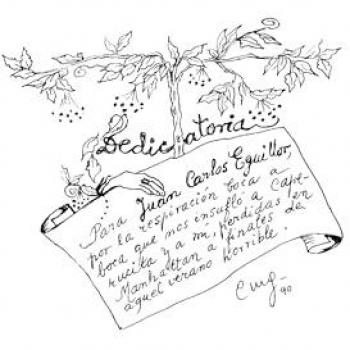 Dedicatoria
Para Juan Carlos Eguillor,
por la respiración boca a
boca que nos insufló a Cape-
rucita y a mí, perdidas en
Manhattan a finales de
aquel verano horrible.
Cmg-
90